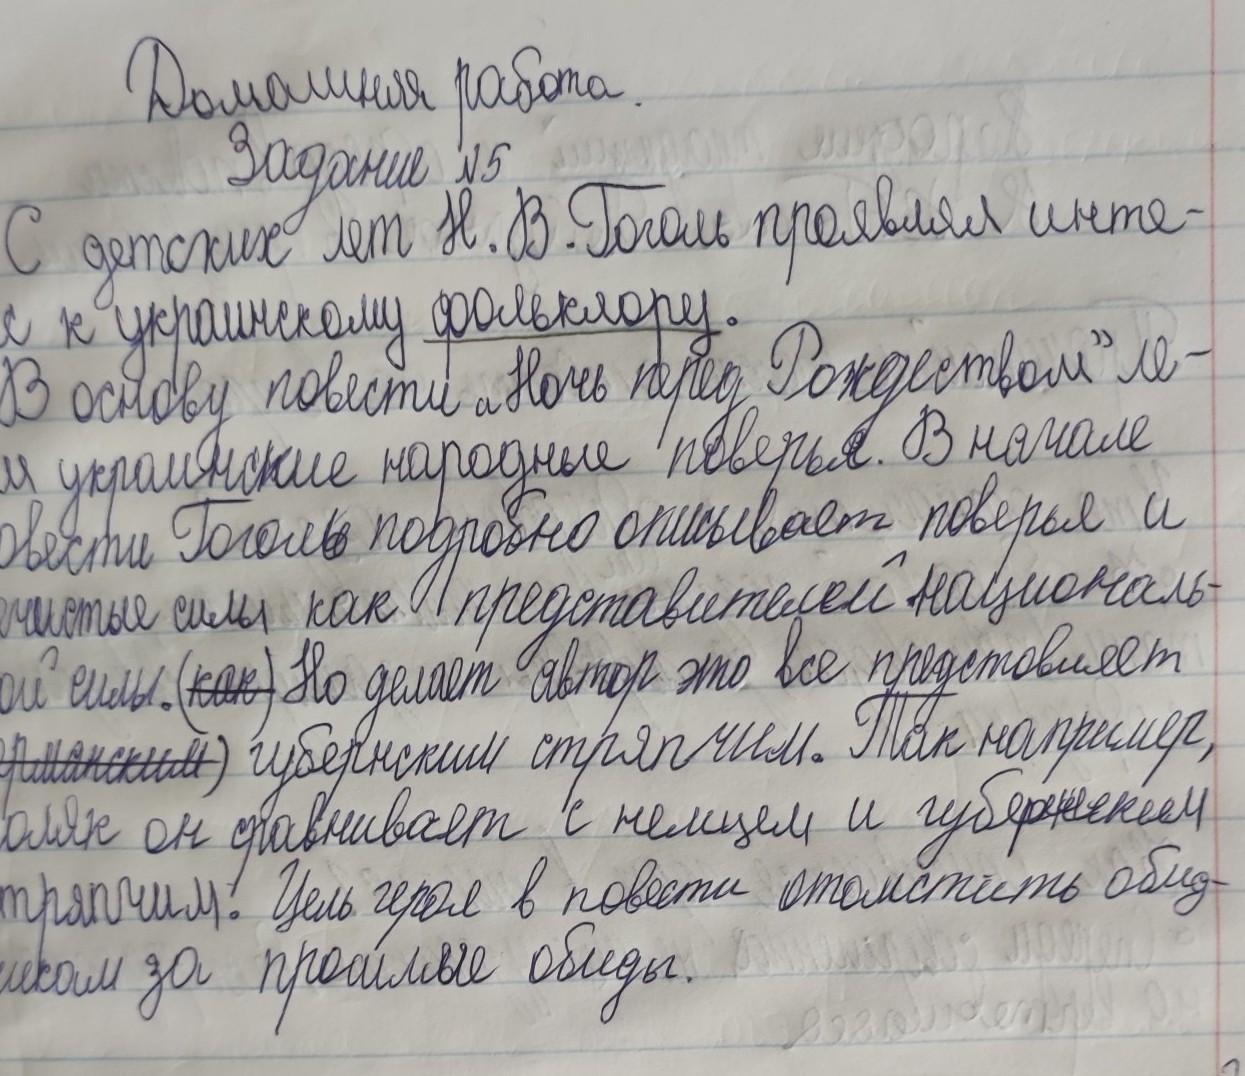 Домашняя работа.
Задание №5
С детских лет Н. В. Гоголь проявлял инте-
с к украинскому фольклору.
В основу повести „Ночь перед Рождеством" ле-
и украинские народные поверья. В начале
овести Гоголь подробно описывает поверья и
ечистые силы как представителей националь-
ой силы. (как) Но делает автор это все представляет
ерманским) губернским стряпчим. Так например,
оляк он сравнивает с немцем и губернским
тряпчим. Цель героя в повести отомстить обид-
икам за прошлые обиды.